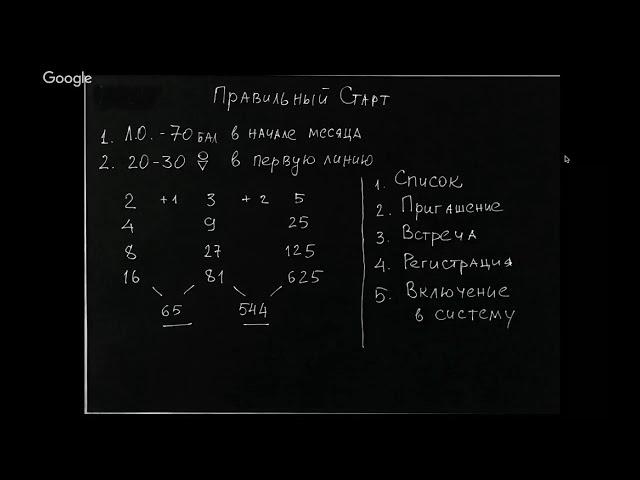 Google
Правильный Старт
1. Л.О. - 70 бал в начале месяца
2. 20-30 в первую линию
2 +1 3 +2 5
4 9 25
8 27 125
16 81 625
65 544
1. Список
2. Пригашение
3. Встреча
4. Регистрация
5. Включение
в систему